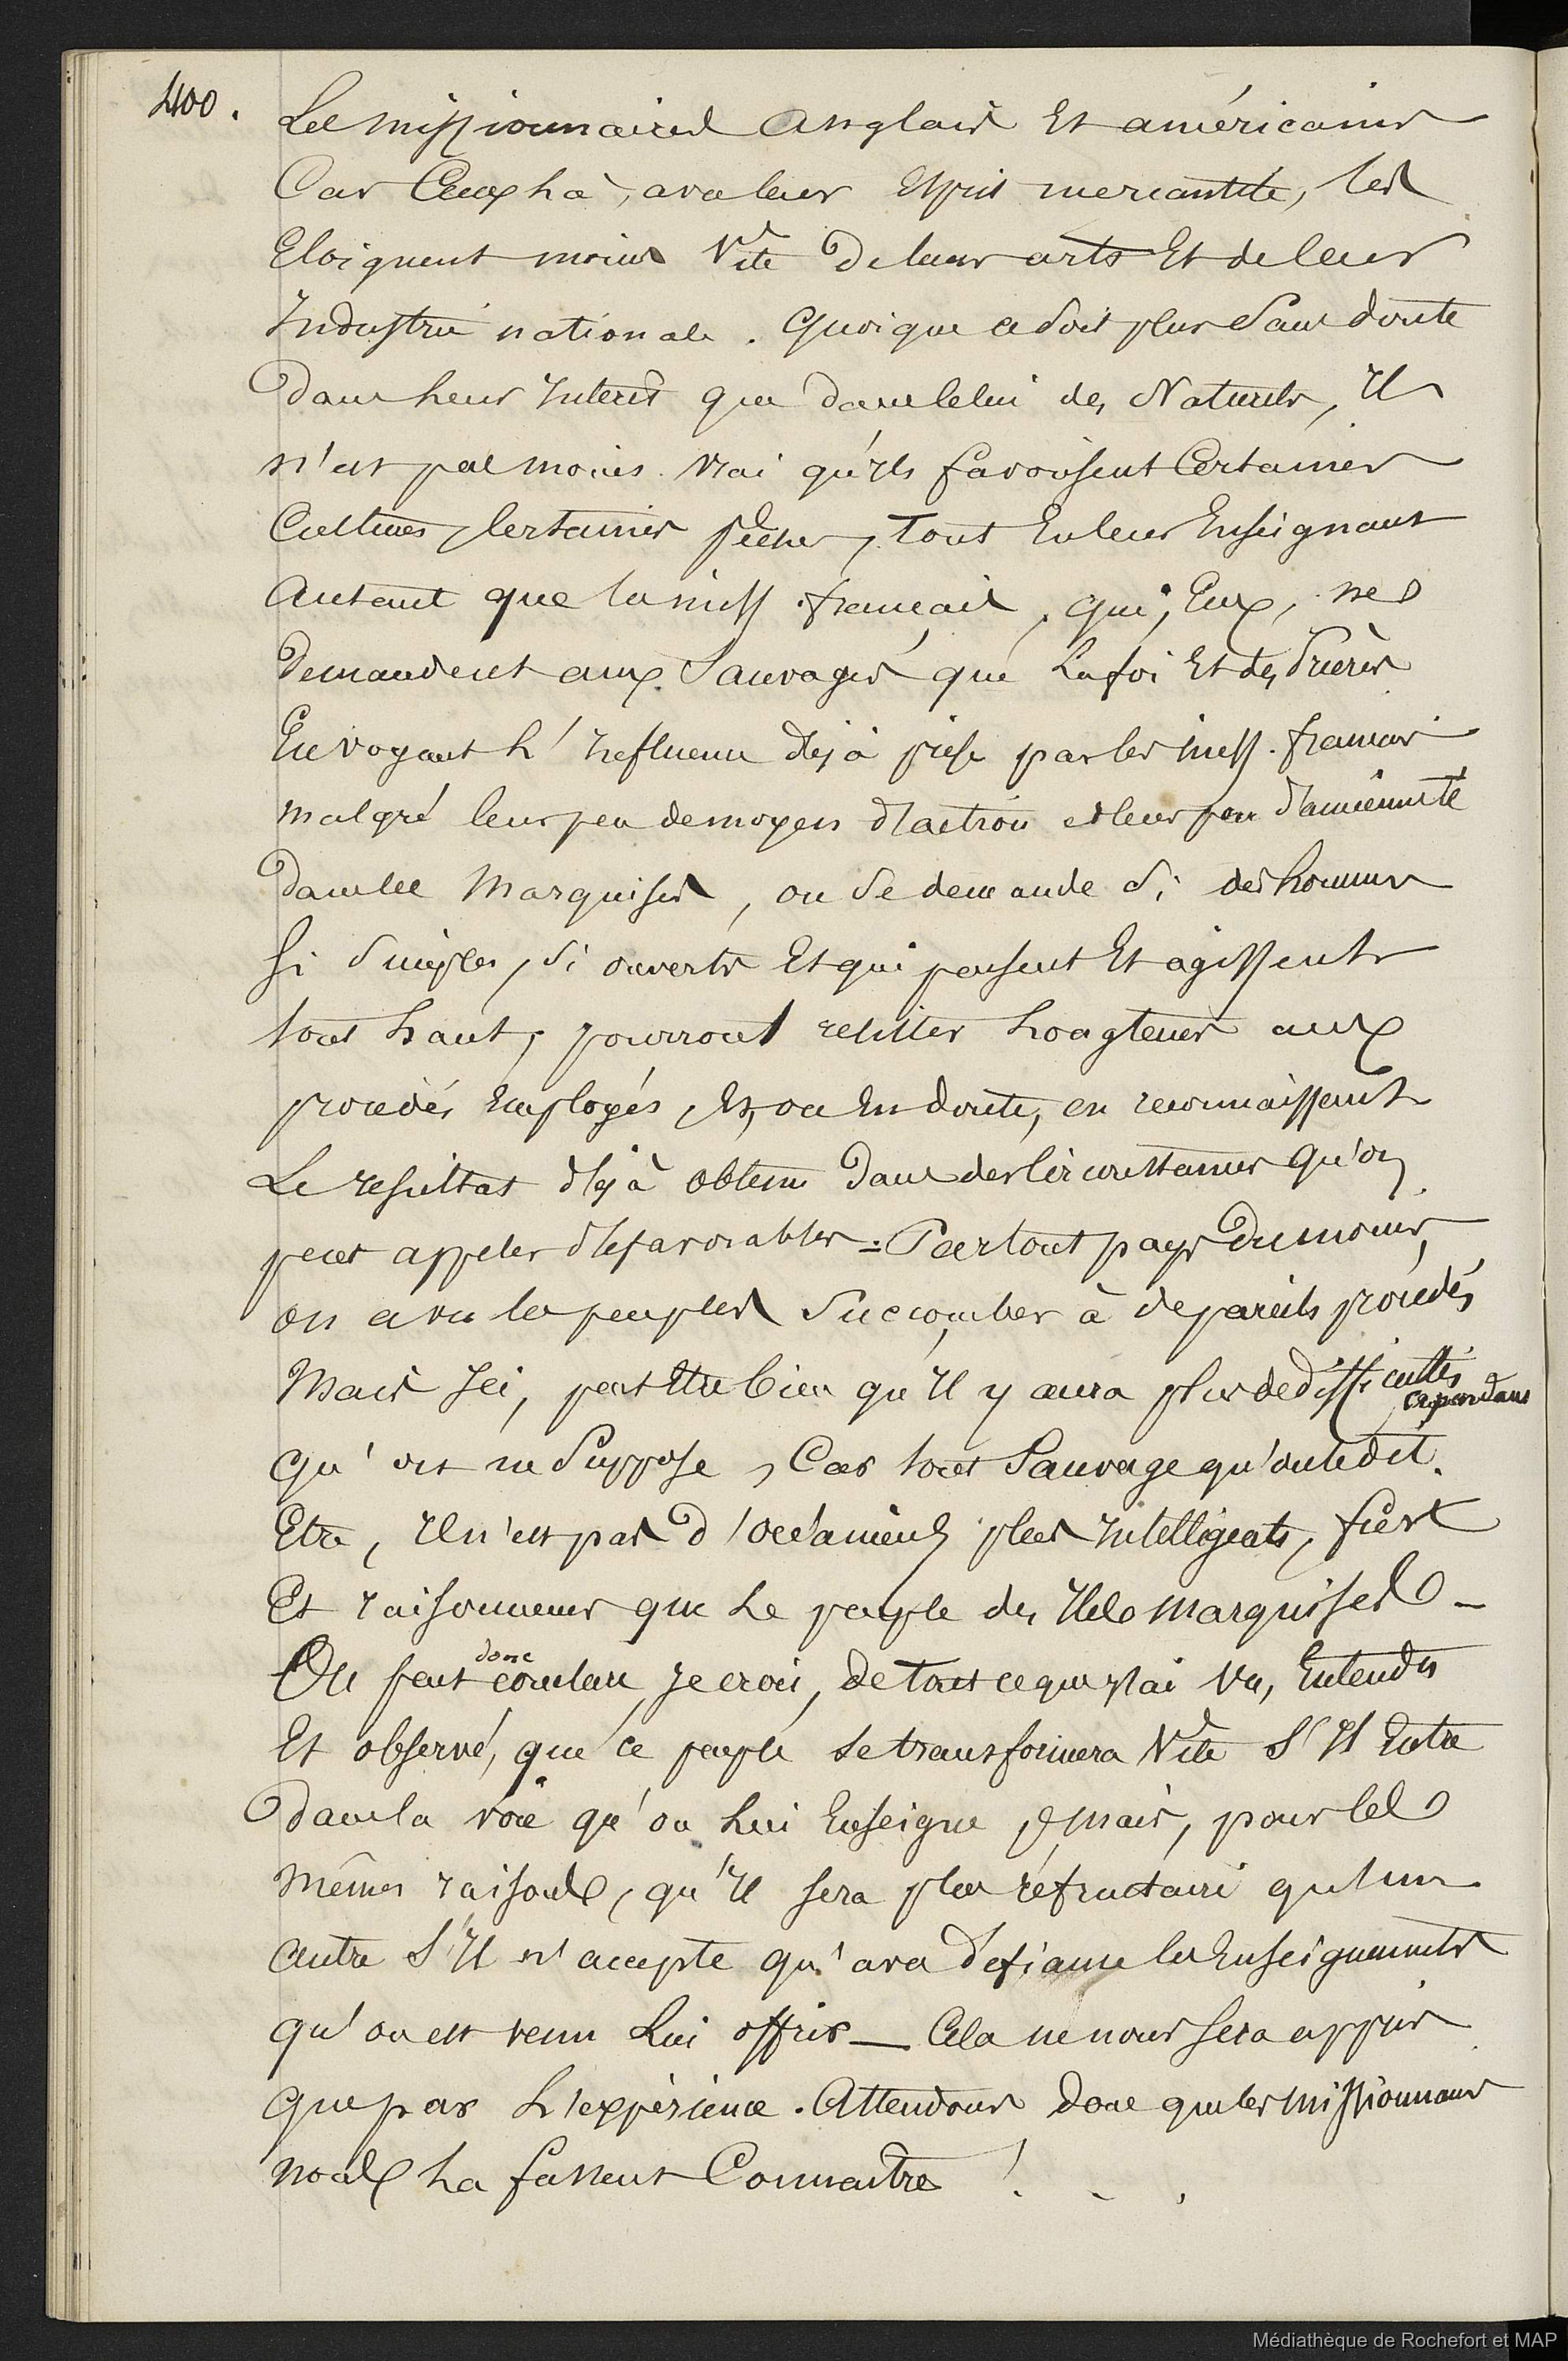 400.
Les missionnaires anglais Et américains
Car Ceux là, avec leur Esprit mercantile, les
Eloignent moins Vite de leurs arts Et de leur
Industrie nationale. Quoique ce soit plus sans doute
dans leur Interêt que dans celui des Naturels, Il
n'est pas moins vrai qu'Ils favorisent Certaines
Cultures, Certaines pêches, tout En leur Enseignant
Autant que les miss. français, qui, Eux, ne
demandent aux Sauvages que La foi Et des Prières
En voyant L'Influence déjà prise par les miss. français
malgré leur peu de moyens d'action et leur peu d'ancienneté
dans les Marquises, on se demande si des hommes
si simples, si ouverts Et qui pensent Et agissent
tout haut, pourront résister longtems aux
procédés Employés, Et, on En doute, en reconnaissant
Le résultat déjà obtenu dans des Circonstances qu'on
peut appeler défavorables = Partout pays du moins,
on a vu les peuples succomber à de pareils procédés
Mais Ici, peut Etre bien qu'Il y aura plus de difficultés
cependant
qu'on ne Suppose, Car tout Sauvage qu'on le dit
Etre, Il n'est pas d'océaniens plus Intelligents, fiers
Et raisonneurs que Le peuple des Iles Marquises –
On peut donc conclure, Je crois, de tout ce que J'ai Vu, Entendu
Et observé, que ce peuple se transformera Vite s'Il Entre
dans la voie qu'on Lui Enseigne, mais, pour les
mêmes raisons, qu'Il sera plus réfractaire qu'un
autre s'Il n'accepte qu'avec défiance les Enseignements
qu'on est venu Lui offrir — Cela ne nous sera appris
que par L'expérience. Attendons donc que les missionnaires
nous La fassent Connaitre ! . .
Médiathèque de Rochefort et MAP